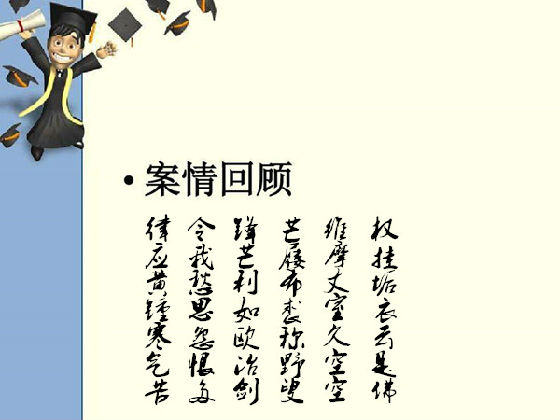 案情回顾
权挂垢衣云是佛
维摩丈室久空空
芒屦布裘称野叟
锋芒利如欧冶剑
令我愁思怨恨多
律应黄锺寒气苦